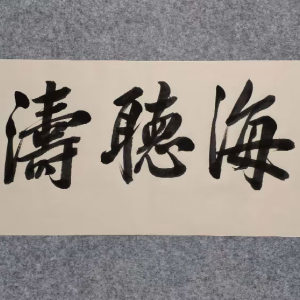 海聽濤